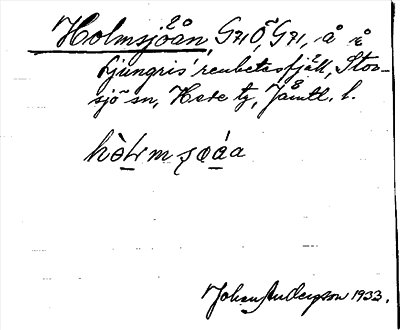 Holmsjöån, G71Ö, G71, å i
Ljungris' renbetesfjäll, Stor-
sjö sn, Hede tg, Jämtl. l.
Johan Anderson 1933.